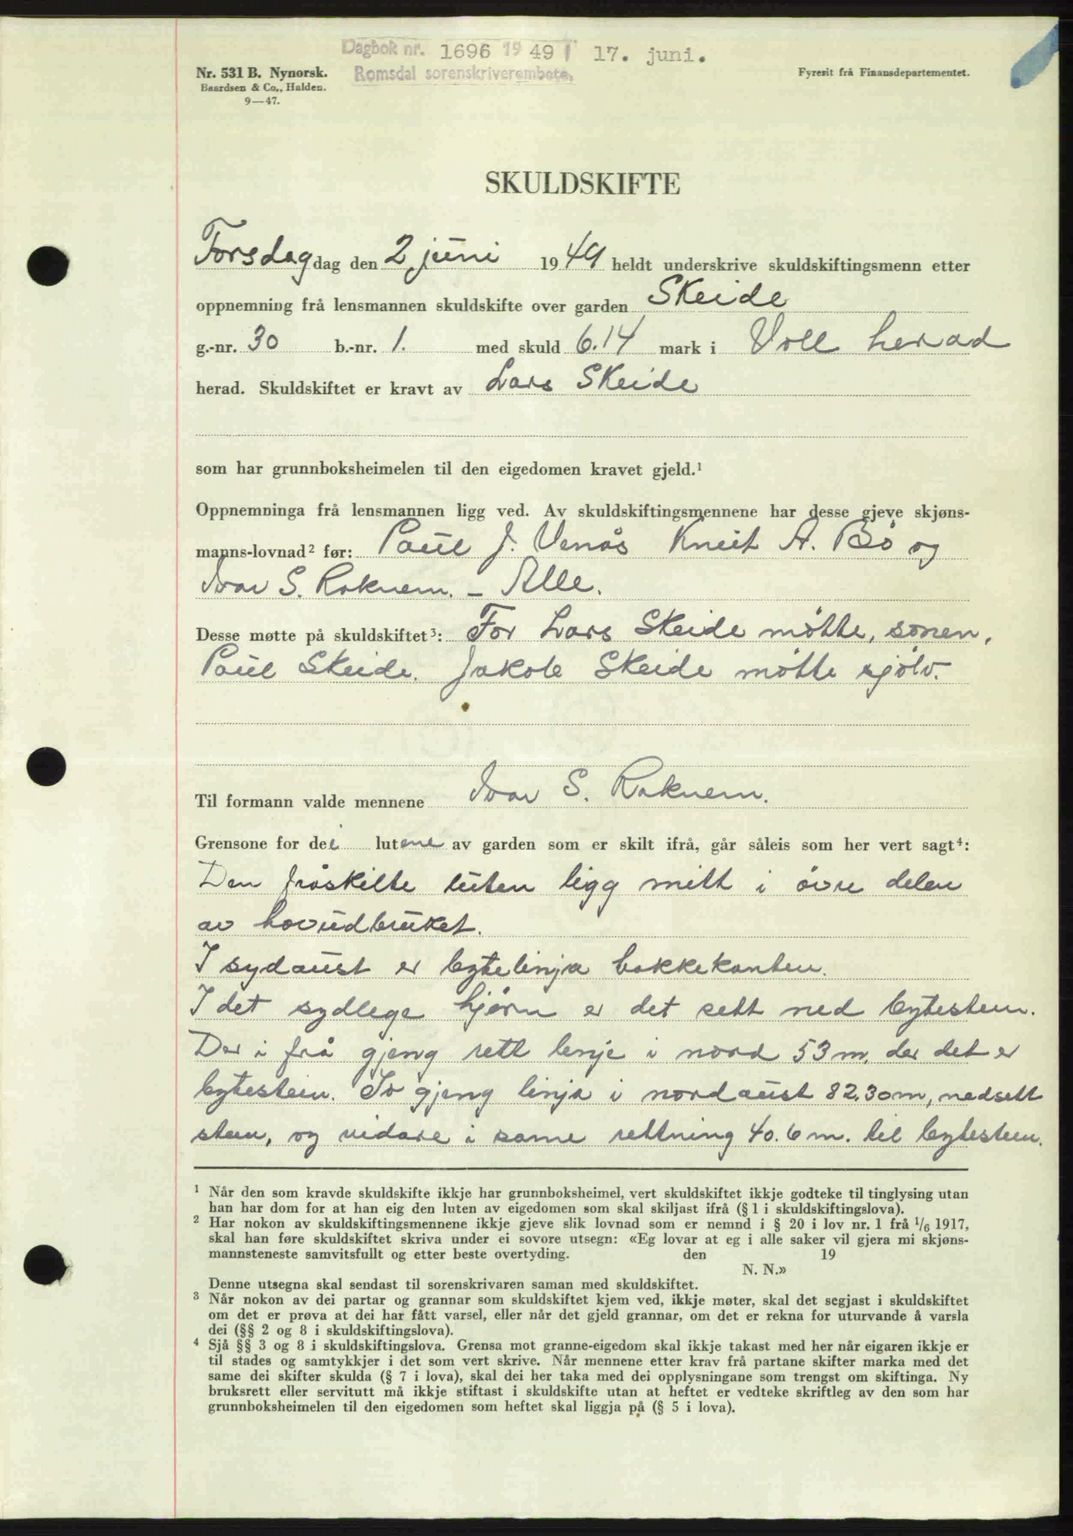 Dagbok nr. 1696 1949 17. juni.
Romsdal sorenskriverembete.
Nr. 531 B. Nynorsk.
Baardsen & Co., Halden.
9—47.
Fyresit frå Finansdepartementet.
SKULDSKIFTE
Torsdag dag den 2 juni 1949 heldt underskrive skuldskiftingsmenn etter
oppnemning frå lensmannen skuldskifte over garden Skeide
g.-nr. 30 b.-nr. 1. med skuld 6.14 mark i Voll herad
herad. Skuldskiftet er kravt av Lars Skeide
som har grunnboksheimelen til den eigedomen kravet gjeld.¹
Oppnemninga frå lensmannen ligg ved. Av skuldskiftingsmennene har desse gjeve skjøns-
manns-lovnad² før: Paul J. Venås Knut A. Bø og
Ivar S. Raknem. – Alle.
Desse møtte på skuldskiftet³: For Lars Skeide møtte, sønen,
Paul Skeide. Jakob Skeide møtte sjølv.
Til formann valde mennene Ivar S. Raknem.
Grensone for dei lutene av garden som er skilt ifrå, går såleis som her vert sagt⁴:
Den fråskilte luten ligg mitt i øvre delen
av hovudbruket.
I sydaust er bytelinja bakkekanten.
I det sydlege hjørn er det sett ned bytestein.
Der i frå gjeng rett linje i nord 53 m, der det er
bytestein. So gjeng linja i nordaust 82.30 m, nedsett
stein, og vidare i same rettning 40.6 m. til bytestein.
¹ Når den som kravde skuldskifte ikkje har grunnboksheimel, vert skuldskiftet ikkje godteke til tinglysing utan
han har dom for at han eig den luten av eigedomen som skal skiljast ifrå (§ 1 i skuldskiftingslova).
² Har nokon av skuldskiftingsmennene ikkje gjeve slik lovnad som er nemnd i § 20 i lov nr. 1 frå 1/6 1917,
skal han føre skuldskiftet skriva under ei sovore utsegn: «Eg lovar at eg i alle saker vil gjera mi skjøns-
mannsteneste samvitsfullt og etter beste overtyding. den 19
N. N.»
Denne utsegna skal sendast til sorenskrivaren saman med skuldskiftet.
³ Når nokon av dei partar og grannar som skuldskiftet kjem ved, ikkje møter, skal det segjast i skuldskiftet
om det er prøva at dei har fått varsel, eller når det gjeld grannar, om det er rekna for uturvande å varsla
dei (§§ 2 og 8 i skuldskiftingslova).
⁴ Sjå §§ 3 og 8 i skuldskiftingslova. Grensa mot granne-eigedom skal ikkje takast med her når eigaren ikkje er
til stades og samtykkjer i det som vert skrive. Når mennene etter krav frå partane skifter marka med det
same dei skifter skulda (§ 7 i lova), skal dei her taka med dei opplysningane som trengst om skiftinga. Ny
bruksrett eller servitutt må ikkje stiftast i skuldskifte utan at heftet er vedteke skriftleg av den som har
grunnboksheimelen til den eigedomen som heftet skal liggja på (§ 5 i lova).